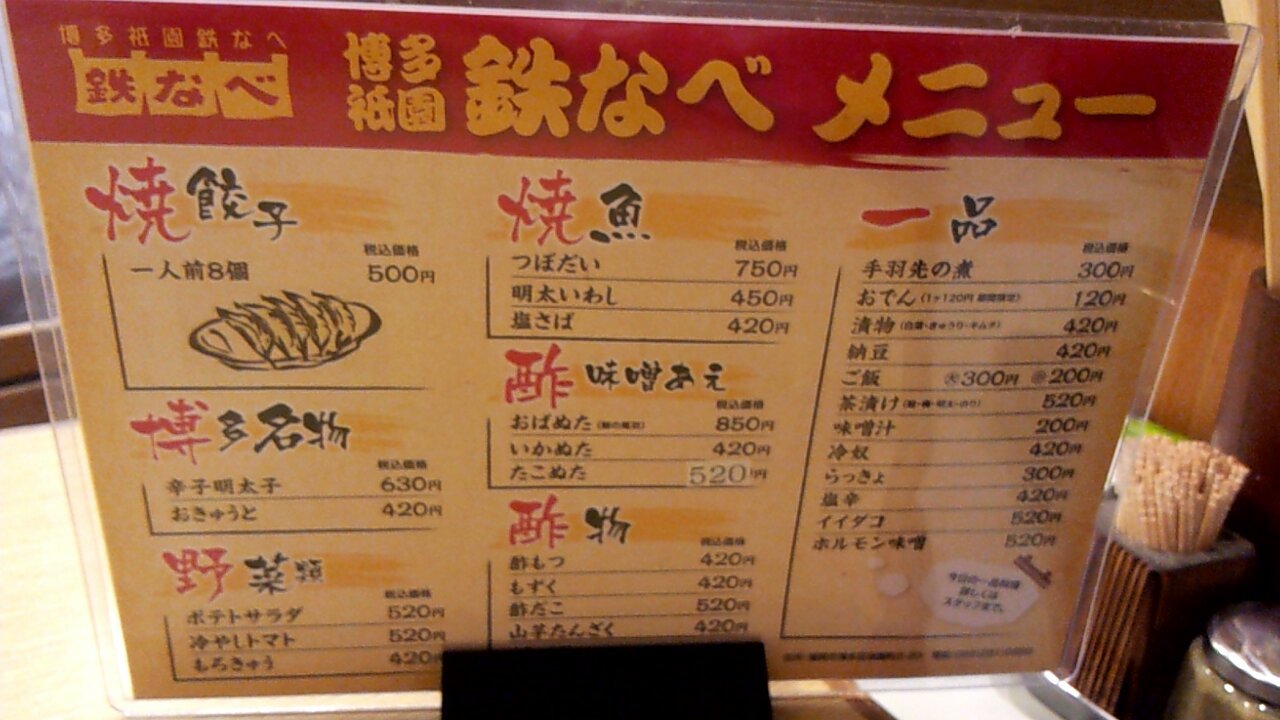 博多祇園鉄なべ
鉄なべ
博多祇園 鉄なべ メニュー
焼餃子
税込価格
一人前8個 500円
博多名物
税込価格
辛子明太子 630円
おきゅうと 420円
野菜類
税込価格
ポテトサラダ 520円
冷やしトマト 520円
もろきゅう 420円
焼魚
税込価格
つぼだい 750円
明太いわし 450円
塩さば 420円
酢味噌あえ
税込価格
おばぬた 850円
いかぬた 420円
たこぬた 520円
酢物
税込価格
酢もつ 420円
もずく 420円
酢だこ 520円
山芋たんざく 420円
一品
税込価格
手羽先の煮 300円
おでん(1ヶ120円 期間限定) 120円
漬物(白菜・きゅうり・キムチ) 420円
納豆 420円
ご飯 ㊅300円 200円
茶漬け(鮭・梅・明太・のり) 520円
味噌汁 200円
冷奴 420円
らっきょ 300円
塩辛 420円
イイダコ 520円
ホルモン味噌 520円
今日の一品料理
詳しくは
スタッフまで。